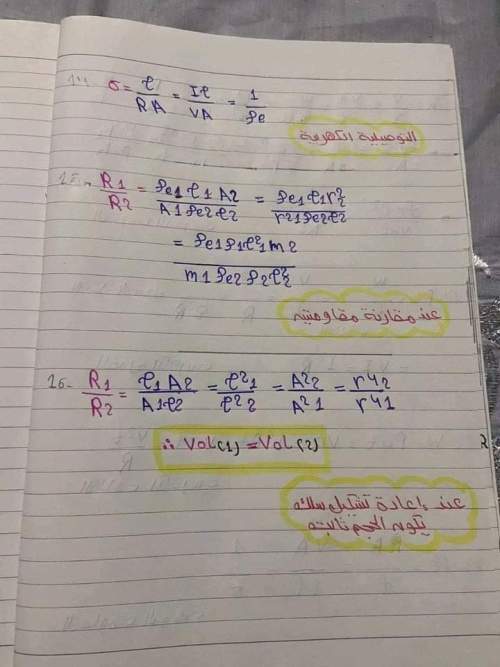 σ = ℓ/RA = Iℓ/VA = 1/ρe
التوصيلية الكهربية
15- R1/R2 = ρe1 ℓ1 A2/A1 ρe2 ℓ2 = ρe1 ℓ1 r²2/r²1 ρe2 ℓ2
= ρe1 ρ1 ℓ²1 m2/m1 ρe2 ρ2 ℓ²2
عند مقارنة مقاومتين
16- R1/R2 = ℓ1 A2/A1 ℓ2 = ℓ²1/ℓ²2 = A²2/A²1 = r⁴2/r⁴1
∴ Vol(1) = Vol(2)
عند إعادة تشكيل سلك
يكون الحجم ثابت